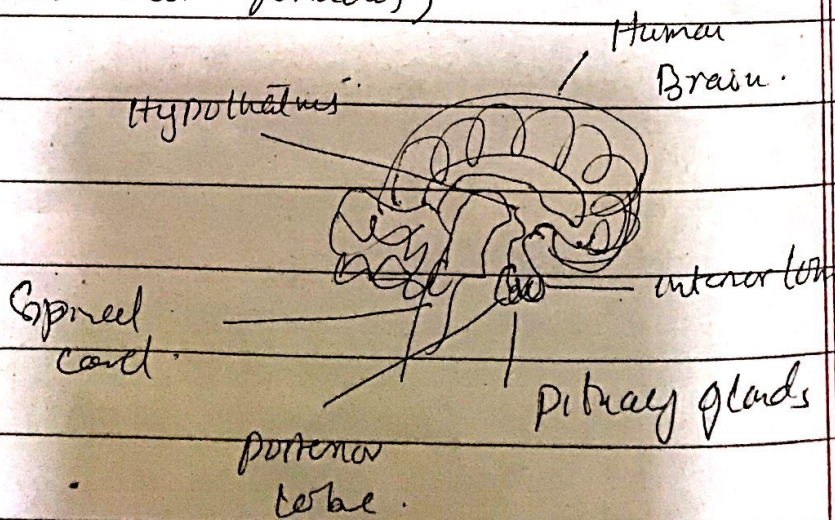 Human
Brain.
Hypothalmis
anterior lob
Spinel
cord.
Pituary glands
posterior
lobe.